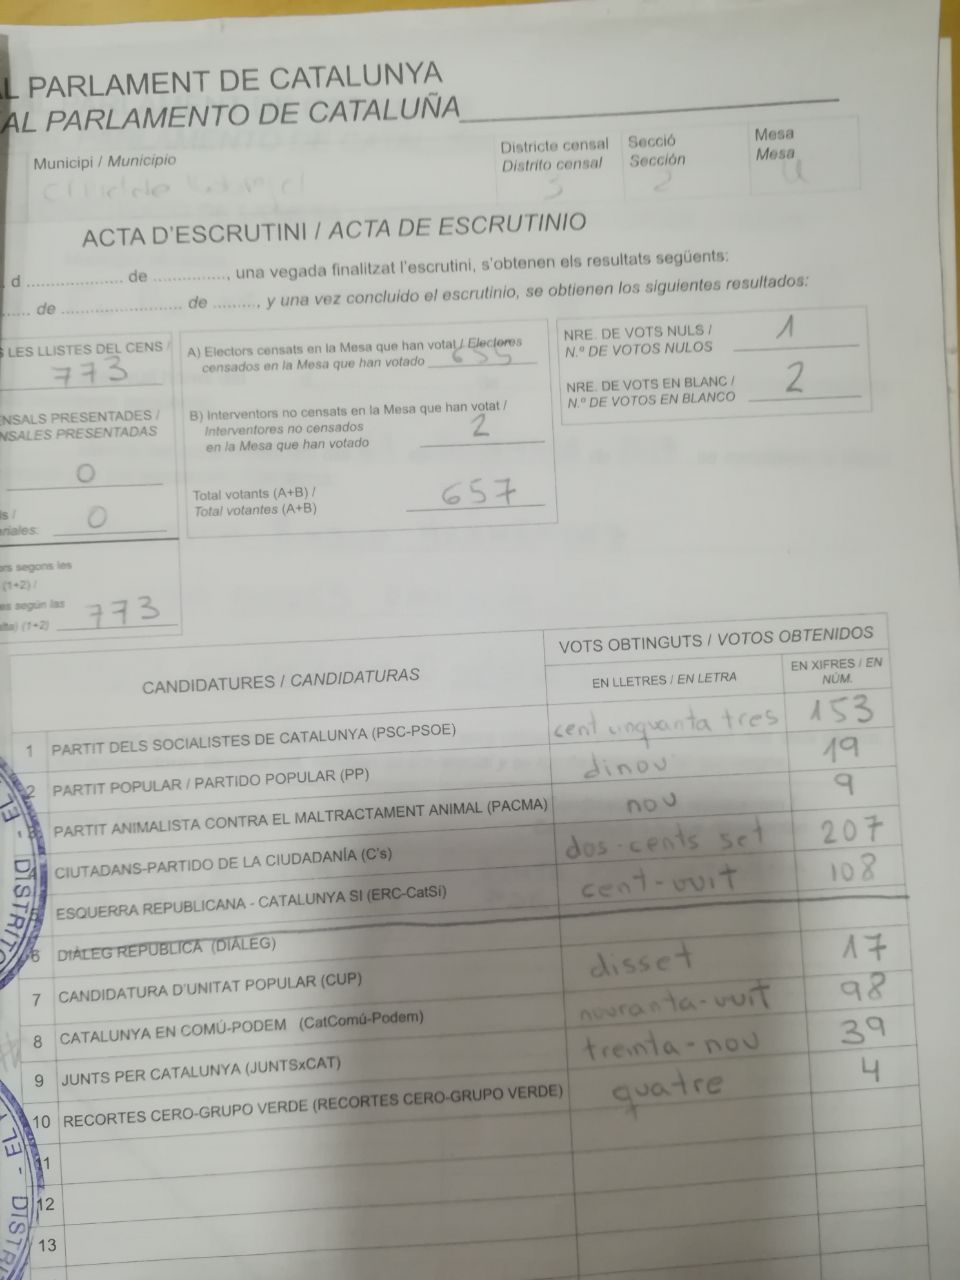 AL PARLAMENT DE CATALUNYA
AL PARLAMENTO DE CATALUÑA
Municipi / Municipio
Districte censal
Distrito censal
3
Secció
Sección
2
Mesa
Mesa
U
ACTA D'ESCRUTINI / ACTA DE ESCRUTINIO
d .................... de .............., una vegada finalitzat l'escrutini, s'obtenen els resultats següents:
...... de ......................... de .........., y una vez concluido el escrutinio, se obtienen los siguientes resultados:
LES LLISTES DEL CENS /
773
ENSALS PRESENTADES /
NSALES PRESENTADAS
0
0
ors segons les
(1+2) /
es según las
(1+2) 773
A) Electors censats en la Mesa que han votat / Electores
censados en la Mesa que han votado 655
B) Interventors no censats en la Mesa que han votat /
Interventores no censados
en la Mesa que han votado 2
Total votants (A+B) /
Total votantes (A+B) 657
NRE. DE VOTS NULS /
N.º DE VOTOS NULOS 1
NRE. DE VOTS EN BLANC /
N.º DE VOTOS EN BLANCO 2
CANDIDATURES / CANDIDATURAS
VOTS OBTINGUTS / VOTOS OBTENIDOS
EN LLETRES / EN LETRA
EN XIFRES / EN NÚM.
1 PARTIT DELS SOCIALISTES DE CATALUNYA (PSC-PSOE) cent cinquanta tres 153
2 PARTIT POPULAR / PARTIDO POPULAR (PP) dinou 19
3 PARTIT ANIMALISTA CONTRA EL MALTRACTAMENT ANIMAL (PACMA) nou 9
4 CIUTADANS-PARTIDO DE LA CIUDADANÍA (C's) dos-cents set 207
5 ESQUERRA REPUBLICANA - CATALUNYA SI (ERC-CatSí) cent-vuit 108
6 DIÀLEG REPUBLICÀ (DIÀLEG)
7 CANDIDATURA D'UNITAT POPULAR (CUP) disset 17
8 CATALUNYA EN COMÚ-PODEM (CatComú-Podem) nouranta-vuit 98
9 JUNTS PER CATALUNYA (JUNTSxCAT) treinta-nou 39
10 RECORTES CERO-GRUPO VERDE (RECORTES CERO-GRUPO VERDE) quatre 4
11
12
13
EL
DISTRITO
EL
DISTRI